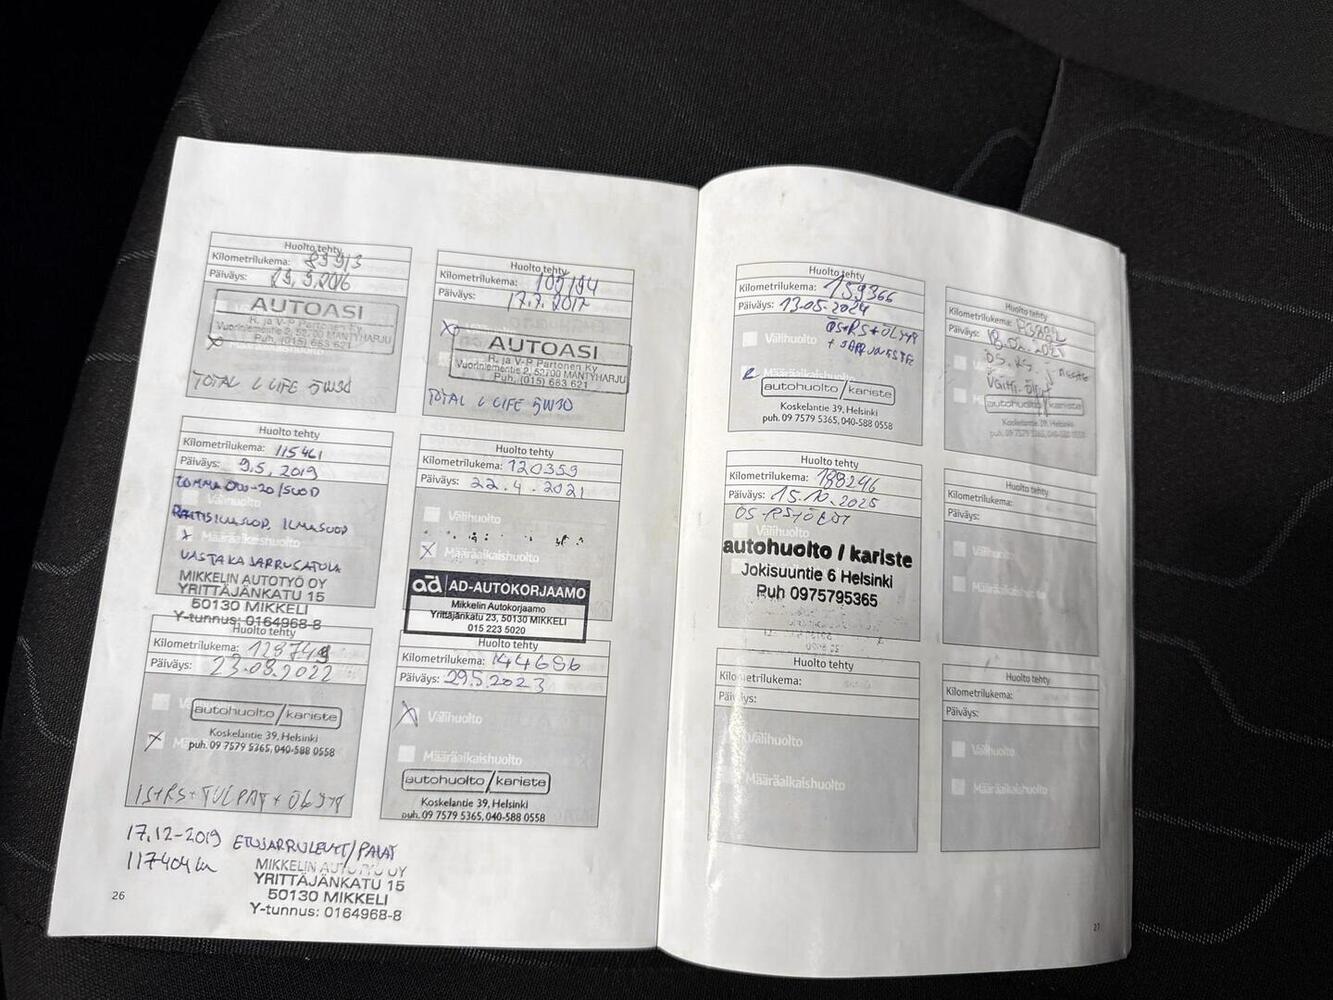 Huolto tehty
Kilometrilukema: 89913
Päiväys: 19.9.2016
AUTOASI
R. ja V-P Partonen Ky
Vuoriniementie 2, 52700 MÄNTYHARJU
Puh. (015) 663 621
TOTAL LIFE 5W30
Huolto tehty
Kilometrilukema: 105194
Päiväys: 17.7.2017
AUTOASI
R. ja V-P Partonen Ky
Vuoriniementie 2, 52700 MÄNTYHARJU
Puh. (015) 663 621
TOTAL LIFE 5W30
Huolto tehty
Kilometrilukema: 115461
Päiväys: 9.5.2019
0W-20/SUOD
RAITISILMASUOD. ILMASUOD
Määräaikaishuolto
VASTAKAJARRUSATULA
MIKKELIN AUTOTYÖ OY
YRITTÄJÄNKATU 15
50130 MIKKELI
Y-tunnus: 0164968-8
Huolto tehty
Kilometrilukema: 120359
Päiväys: 22.4.2021
Välihuolto
Määräaikaishuolto
ad AD-AUTOKORJAAMO
Mikkelin Autokorjaamo
Yrittäjänkatu 23, 50130 MIKKELI
015 223 5020
Huolto tehty
Kilometrilukema: 128749
Päiväys: 23.08.2022
autohuolto/kariste
Koskelantie 39, Helsinki
puh. 09 7579 5365, 040-588 0558
Huolto tehty
Kilometrilukema: 144686
Päiväys: 29.5.2023
Välihuolto
Määräaikaishuolto
autohuolto/kariste
Koskelantie 39, Helsinki
puh. 09 7579 5365, 040-588 0558
17.12-2019 ETUJARRULEVYT/PALAT
117404 km
MIKKELIN AUTOTYÖ OY
YRITTÄJÄNKATU 15
50130 MIKKELI
Y-tunnus: 0164968-8
26
Huolto tehty
Kilometrilukema: 159366
Päiväys: 13.05.2024
Välihuolto
ÖS+RS+ÖLJYT
Määräaikaishuolto
autohuolto/kariste
Koskelantie 39, Helsinki
puh. 09 7579 5365, 040-588 0558
Huolto tehty
Kilometrilukema:
Päiväys:
autohuolto/kariste
Koskelantie 39, Helsinki
puh. 09 7579 5365, 040-588 0558
Huolto tehty
Kilometrilukema: 188246
Päiväys: 15.10.2025
autohuolto / kariste
Jokisuuntie 6 Helsinki
Puh 0975795365
Huolto tehty
Kilometrilukema:
Päiväys:
Välihuolto
Määräaikaishuolto
Huolto tehty
Kilometrilukema:
Päiväys:
Välihuolto
Määräaikaishuolto
Huolto tehty
Kilometrilukema:
Päiväys:
Välihuolto
Määräaikaishuolto
27